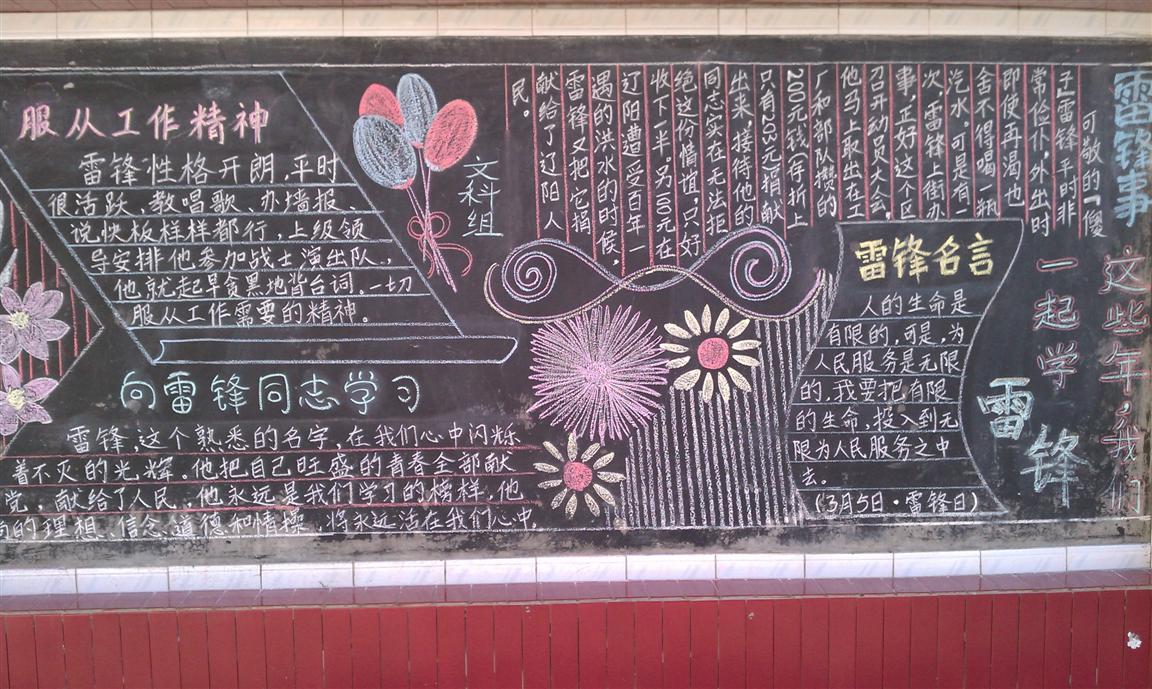 服从工作精神
雷锋性格开朗,平时
很活跃,教唱歌、办墙报、
说快板样样都行,上级领
导安排他参加战士演出队,
他就起早贪黑地背台词。一切
服从工作需要的精神。
向雷锋同志学习
雷锋,这个熟悉的名字,在我们心中闪烁
着不灭的光辉。他把自己旺盛的青春全部献
党,献给了人民,他永远是我们学习的榜样,他
的理想、信念、道德和情操,将永远活在我们心中。
文科组
雷锋事
可敬的“傻
子”雷锋平时非
常俭仆,外出时
即使再渴也
舍不得喝一瓶
汽水,可是有一
次,雷锋上街办
事,正好这个区
召开动员大会,
他马上取出在工
厂和部队攒的
200元钱(存折上
只有203元)捐献
出来,接待他的
同志实在无法拒
绝这份情谊,只好
收下一半。另100元在
辽阳遭受百年一
遇的洪水的时候,
雷锋又把它捐
献给了辽阳人
民。
雷锋名言
人的生命是
有限的,可是,为
人民服务是无限
的,我要把有限
的生命,投入到无
限为人民服务之中
去。
(3月5日·雷锋日)
这些年,我们
一起学
雷锋